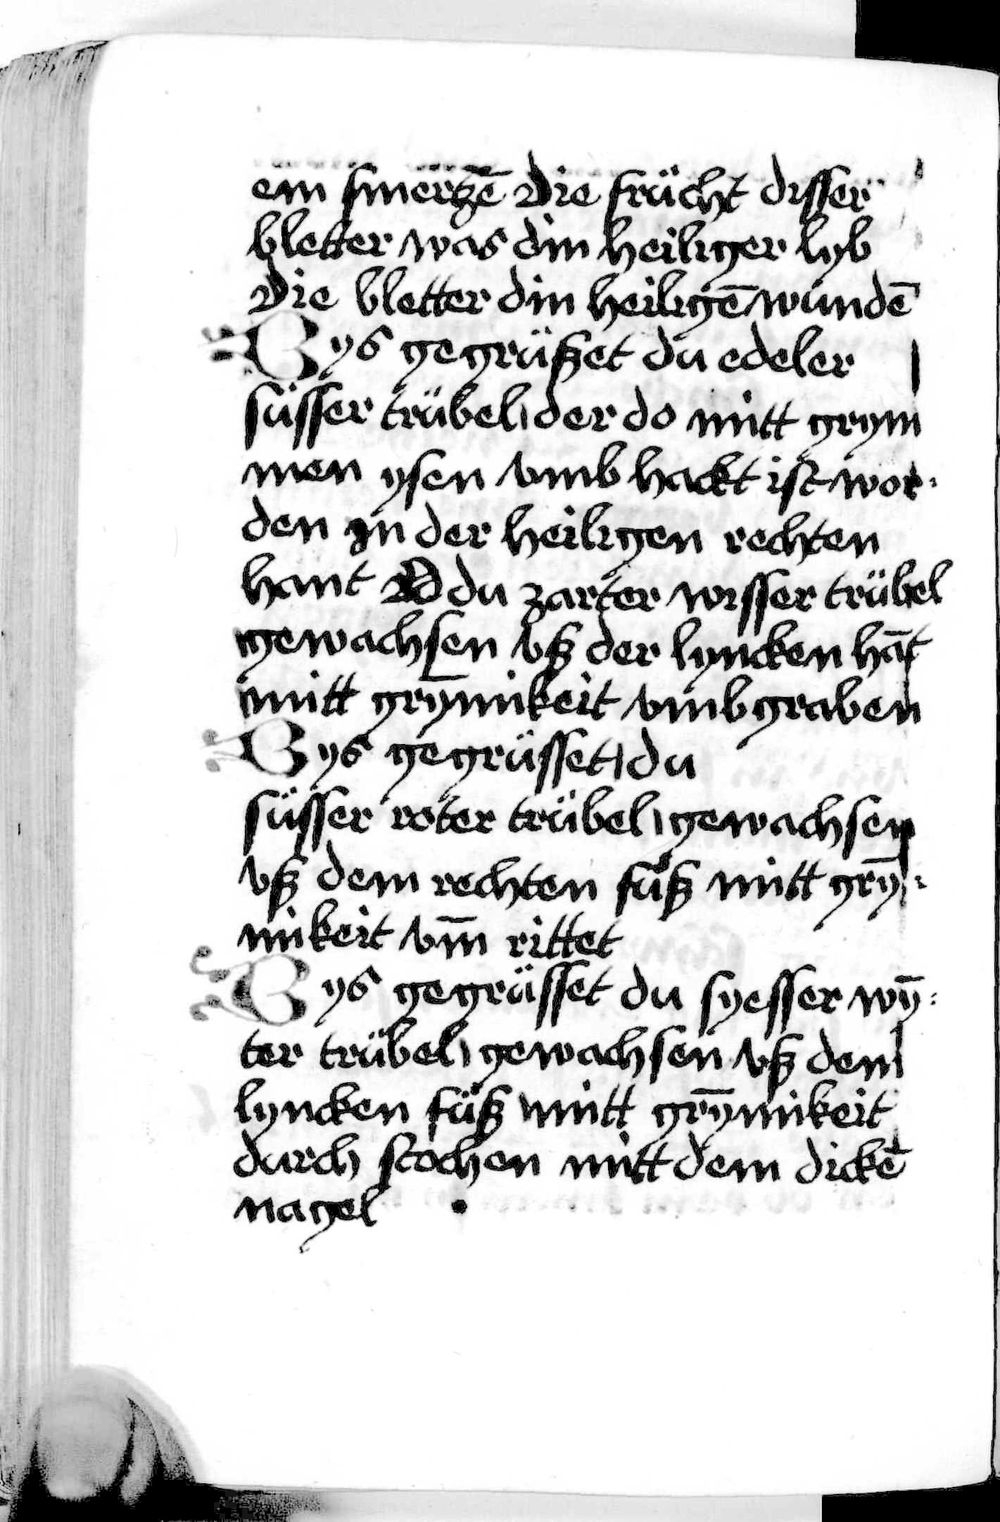 ein smertzē Die frücht disser
bletter was din heiliger lyb
Die bletter din heiligē wundē
Bys gegrüßet du edeler
süsser trübel der do mitt grym
men ysen vmb hackt ist wor-
den in der heiligen rechten
hant O du zarter wisser trübel
gewachsen vß der lyncken hāt
mitt grȳmikeit vmbgraben
Bys gegrüsset du
süsser roter trübel gewachsen
vß dem rechten fuͦß mitt grȳ-
mikeit vm̄ rittet
Bys gegrüsset du syesser wȳ-
ter trübel gewachsen vß dem
lyncken füß mitt grȳmikeit
durch stochen mitt dem dickē
nagel .